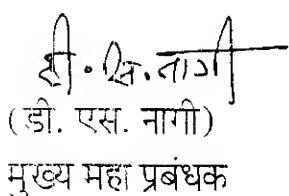 डी. एस. नागी
(डी. एस. नागी)
मुख्य महा प्रबंधक